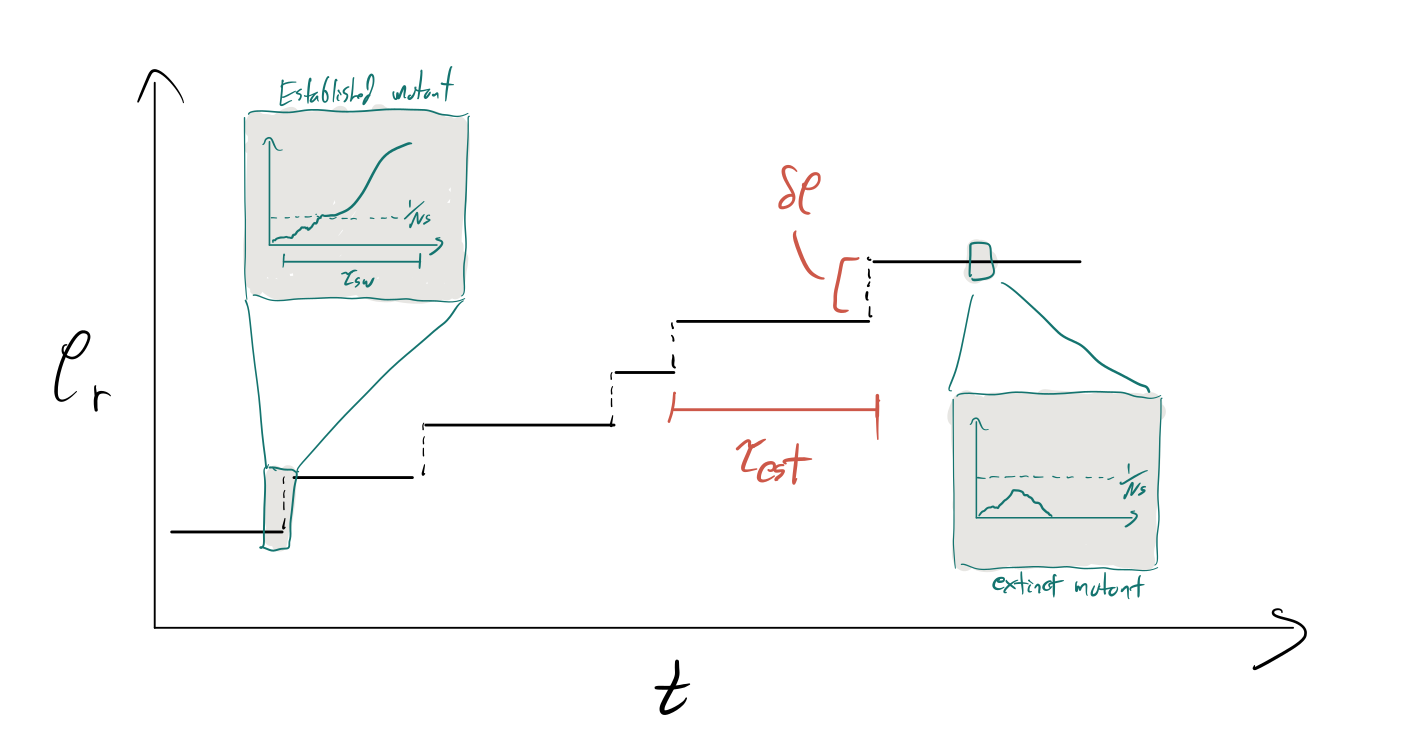 Established mutant
1/Ns
τsw
δℓ
ℓr
τest
1/Ns
extinct mutant
t